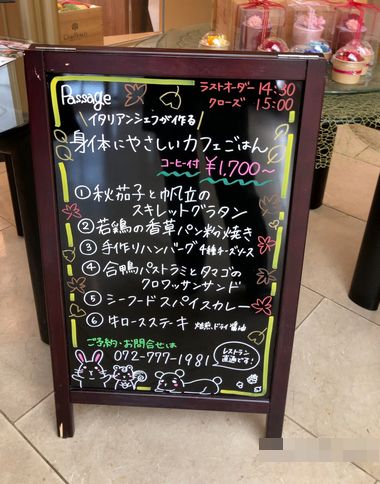 Passage
ラストオーダー 14:30
クローズ 15:00
\イタリアンシェフが作る/
身体にやさしいカフェごはん
コーヒー付 ¥1,700〜
① 秋茄子と帆立の
スキレットグラタン
② 若鶏の香草パン粉焼き
③ 手作りハンバーグ 4種チーズソース
④ 合鴨パストラミとタマゴの
クロワッサンサンド
⑤ シーフードスパイスカレー
⑥ 牛ロースステーキ 焙煎ドライ醤油
ご予約・お問合せは
072-777-1981
レストラン
直通です!